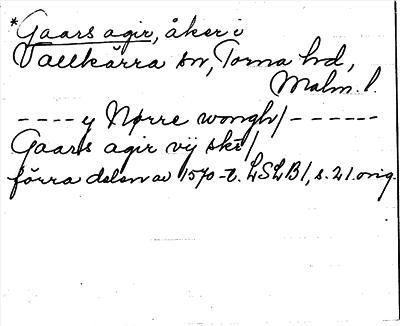 *Gaars agir, åker i
Vallkärra sn, Torna hd,
Malm. l.
---- y Nørre wongh/ ------
Gaars agir vij ske/
förra delen av 1570-t. LSLB1, s. 21. orig.